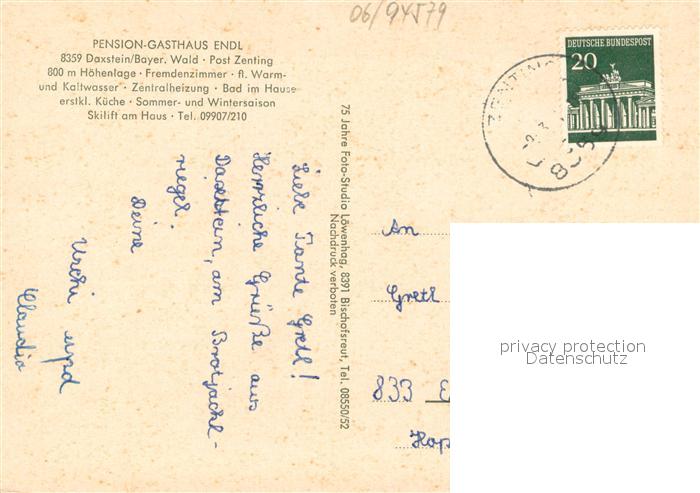 06/94579
PENSION-GASTHAUS ENDL
8359 Daxstein/Bayer. Wald · Post Zenting
800 m Höhenlage · Fremdenzimmer · fl. Warm-
und Kaltwasser · Zentralheizung · Bad im Hause
erstkl. Küche · Sommer- und Wintersaison
Skilift am Haus · Tel. 09907/210
DEUTSCHE BUNDESPOST
20
ZENTING
8359
75 Jahre Foto-Studio Löwenhag, 8391 Bischofsreut, Tel. 08550/52
Nachdruck verboten
Liebe Tante Gretl!
Herzliche Grüße aus
Daxstein, am Brotjackl-
riegel.
Deine
Uschi und
Claudia
An
Gretl
833 E
Hop
privacy protection
Datenschutz